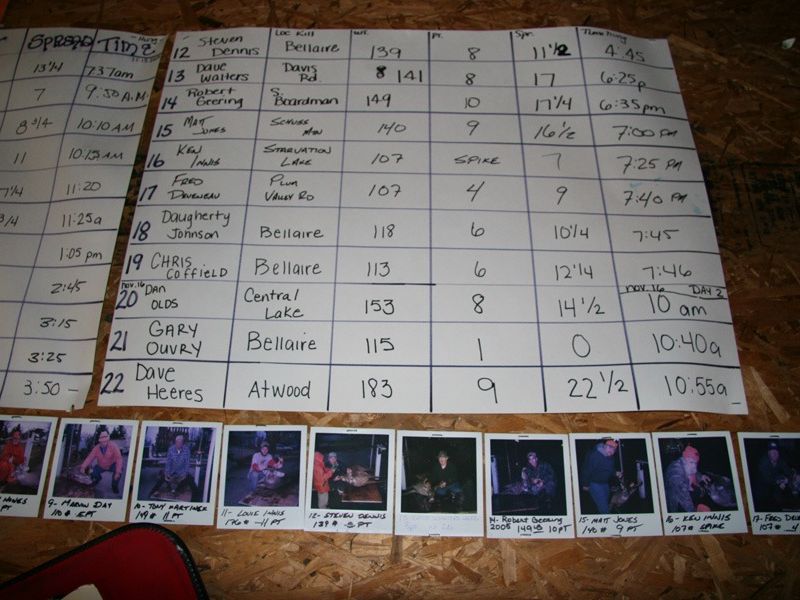 SPREAD
-Hung-
TIME
13 1/4 7:37am
7 9:50 A.M
8 3/4 10:10 AM
11 10:13 AM
7 1/4 11:20
3/4 11:25a
1:05 pm
2:45
3:15
3:25
3:50 -
Loc Kill Wt. Pt. Spr. Time Hung
12 Steven Dennis Bellaire 139 8 11 1/2 4:45
13 Dave Walters Davis Rd 141 8 17 6:25p
14 Robert Geering S. Boardman 149 10 17 1/4 6:35pm
15 Matt Jones Schuss Mtn 140 9 16 1/2 7:00 PM
16 Ken Innis Starvation Lake 107 SPIKE 7 7:25 PM
17 Fred Plum Valley Rd 107 4 9 7:40 PM
18 Daugherty Johnson Bellaire 118 6 10 1/4 7:45
19 Chris Coffield Bellaire 113 6 12 1/4 7:46
nov. 16 nov. 16 DAY 2
20 Dan Olds Central Lake 153 8 14 1/2 10 am
21 GARY OUVRY Bellaire 115 1 0 10:40a
22 Dave Heeres Atwood 183 9 22 1/2 10:55a
9- Day
110 # 5PT
10- Tony Martinek
149 # 11 PT
11- Louie Innis
176 # -11 PT
12- Steven Dennis
139 # 8 PT
14- Robert Geering
2005 149 lb 10 PT
15- Matt Jones
140 # 9 PT
16- Ken Innis
107 # SPIKE
17- Fred
107 #